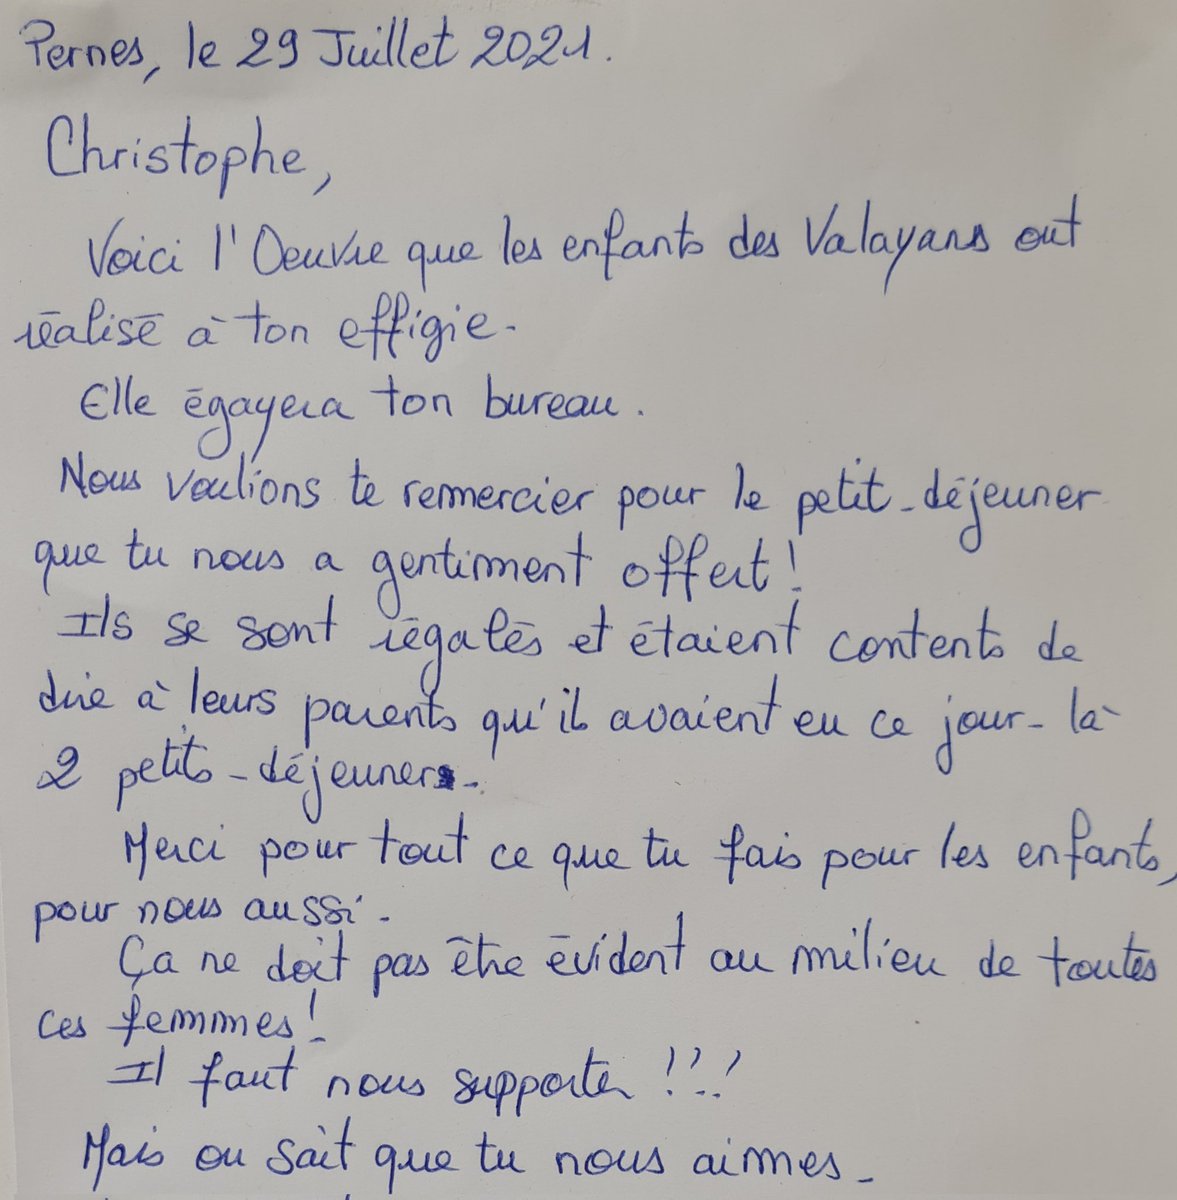 Pernes, le 29 Juillet 2021.
Christophe,
Voici l'Oeuvre que les enfants des Valayans ont
réalisé à ton effigie.
Elle égayera ton bureau.
Nous voulions te remercier pour le petit-déjeuner
que tu nous a gentiment offert!
Ils se sont régalés et étaient contents de
dire à leurs parents qu'ils avaient eu ce jour-là
2 petits-déjeuners.
Merci pour tout ce que tu fais pour les enfants,
pour nous aussi.
Ça ne doit pas être évident au milieu de toutes
ces femmes!
Il faut nous supporter!!!
Mais on sait que tu nous aimes.